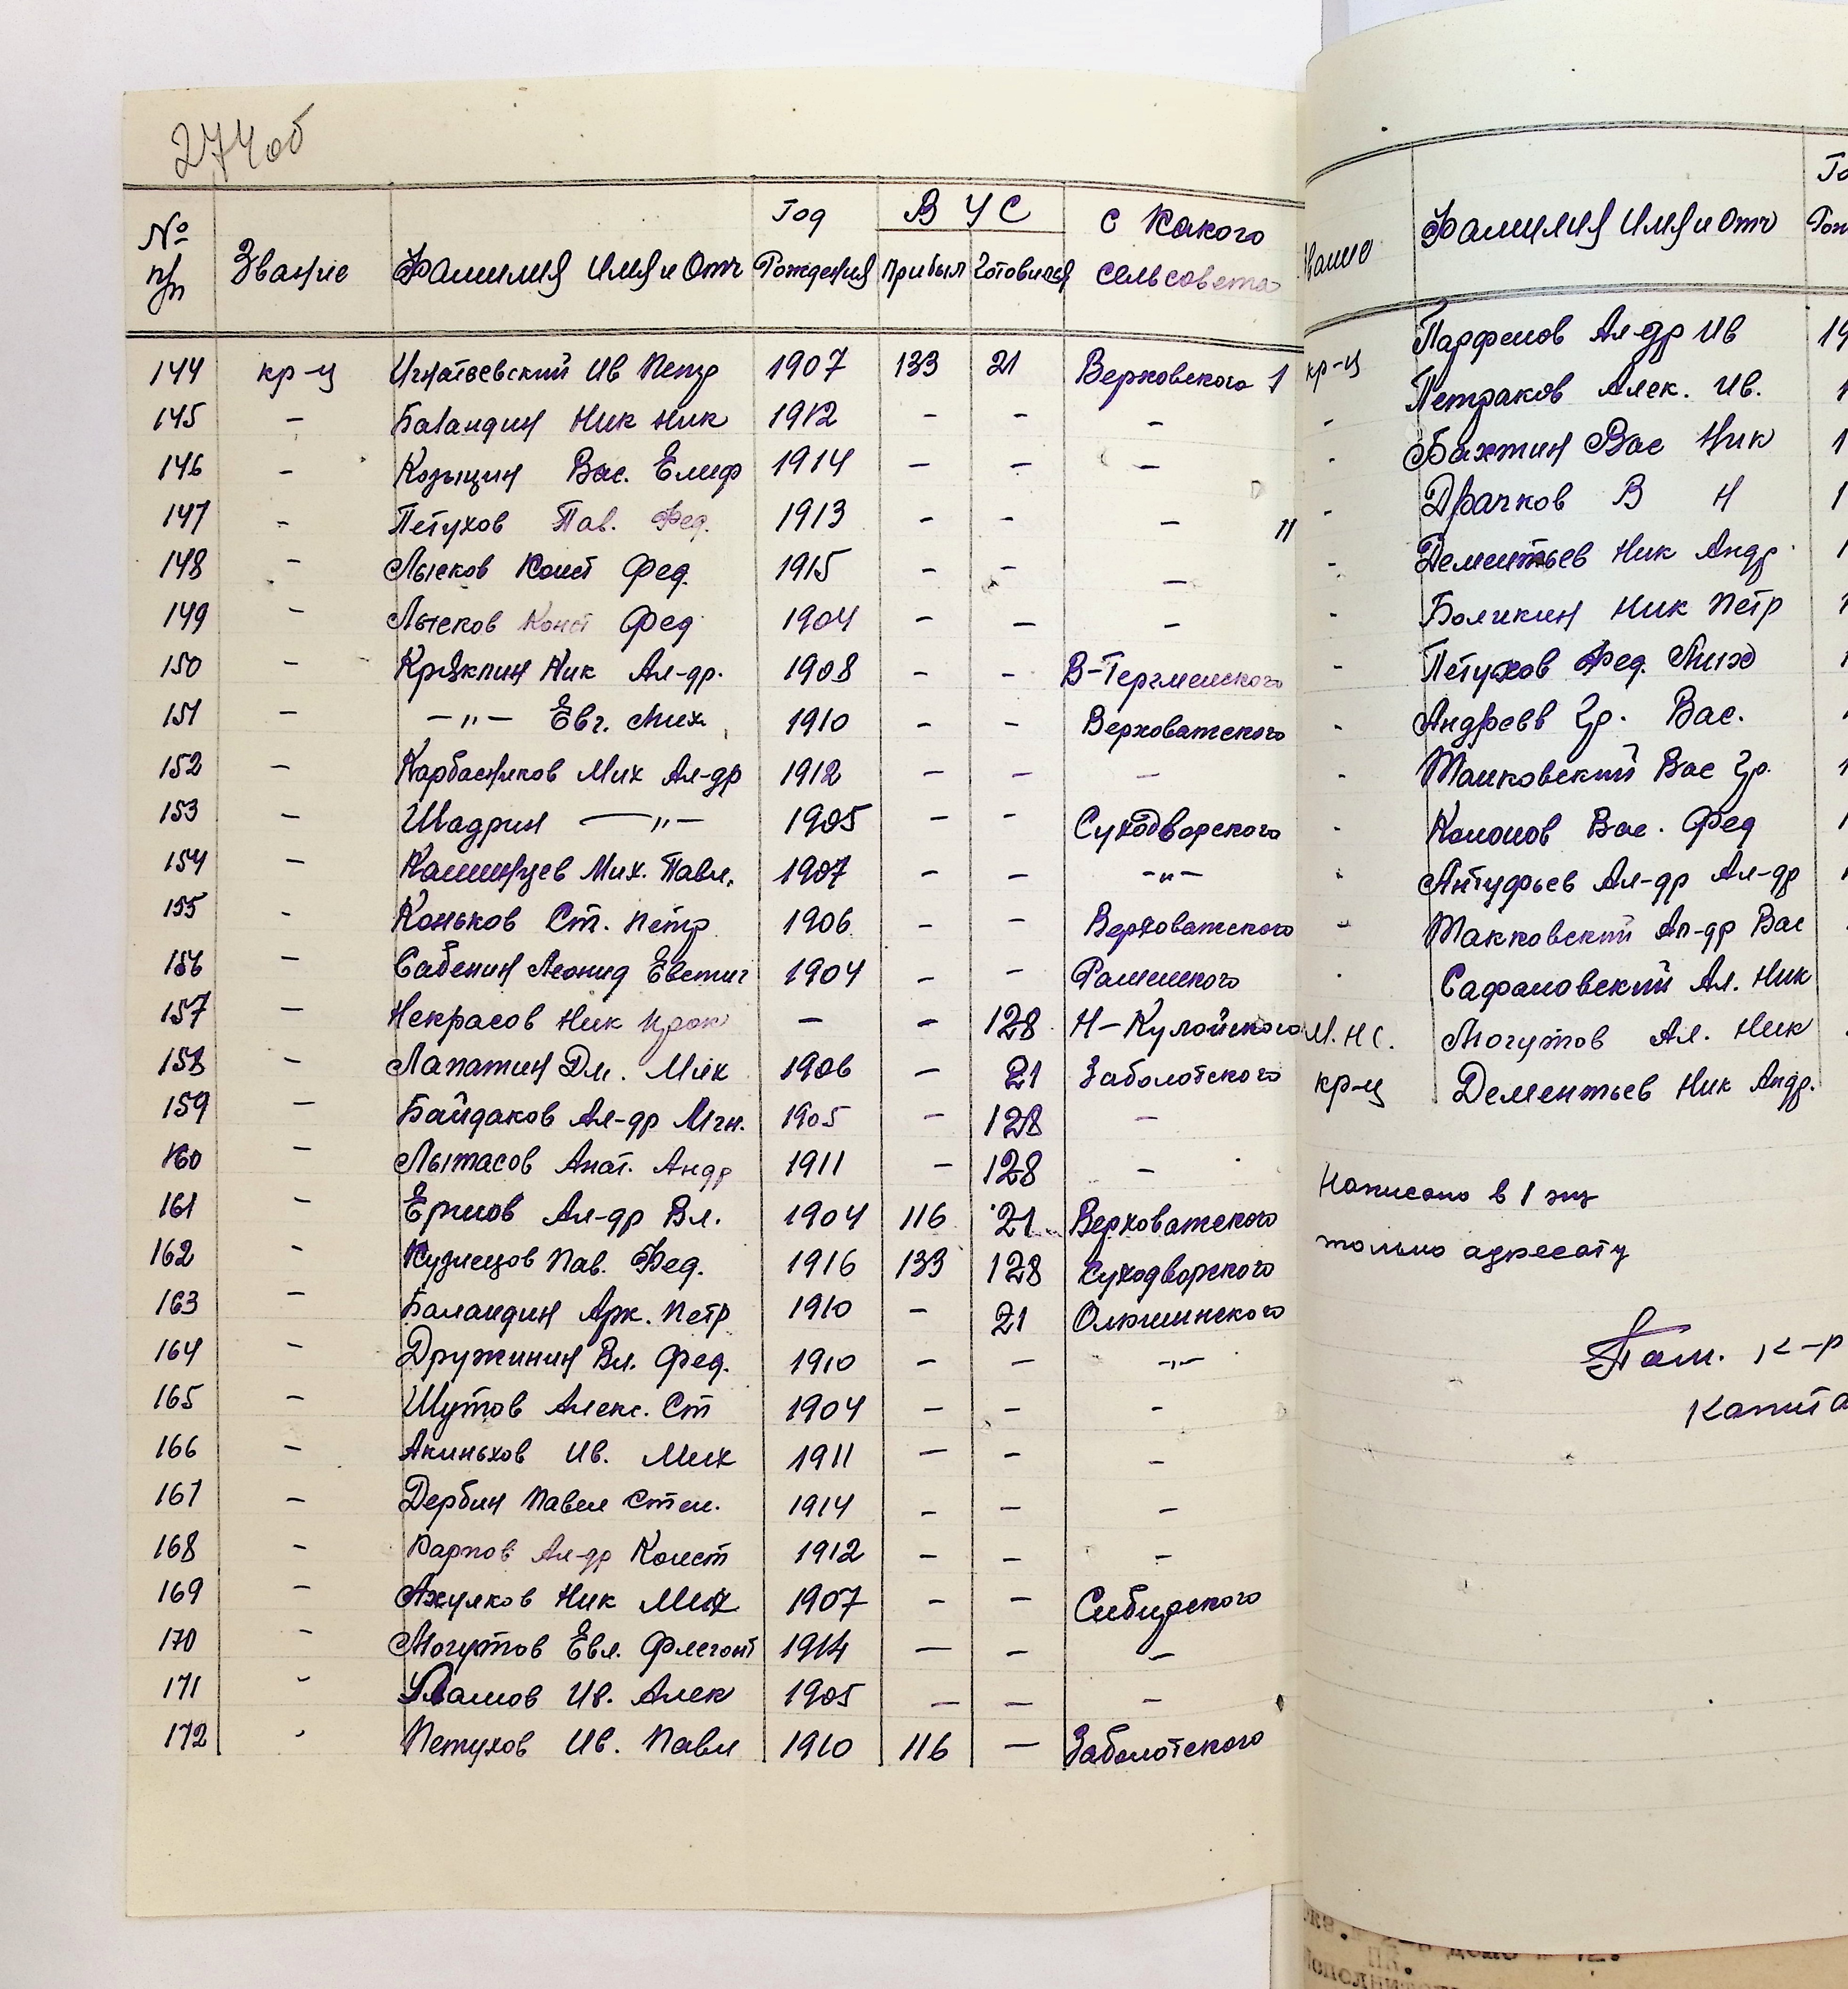 274об
№ п/п Звание Фамилия Имя и Отч Год Рождения В У С Прибыл Готовился С Какого сельсовета
144 кр-ц Игнатьевский Ив Петр 1907 133 21 Верховского 1
145 – Баландин Ник Ник 1912 – – –
146 – Козыцин Вас. Елиф 1914 – – –
147 – Петухов Пав. Фед. 1913 – – – 11
148 – Лысков Конст Фед. 1915 – – –
149 – Лысков Конст Фед 1904 – – –
150 – Крюкпин Ник Ал-др. 1908 – – В-Терменского
151 – –"– Евг. Мих. 1910 – – Верховатского
152 – Карбасников Мих Ал-др 1912 – – –
153 – Шадрин –"– 1905 – – Суходворского
154 – Кашинцев Мих. Павл. 1907 – – –"–
155 – Коньков Ст. Петр 1906 – – Верховатского
156 – Сабенин Леонид Евстиг 1904 – – Раменского
157 – Некрасов Ник Прок – – 128 Н-Кулойского
158 – Лапатин Дм. Мих 1906 – 21 Заболотского
159 – Байдаков Ал-др Игн. 1905 – 128 –
160 – Лытасов Анат. Андр 1911 – 128 –
161 – Ершов Ал-др Вл. 1904 116 21 Верховатского
162 – Кузнецов Пав. Фед. 1916 133 128 Суходворского
163 – Баландин Арк. Петр 1910 – 21 Олюшинского
164 – Дружинин Вл. Фед. 1910 – – –"–
165 – Шутов Алекс. Ст 1904 – – –
166 – Акиньхов Ив. Мих 1911 – – –
167 – Дербин Павел Степ. 1914 – – –
168 – Карпов Ал-др Конст 1912 – – –
169 – Ажулков Ник Мих 1907 – – Сибирского
170 – Могутов Евл. Флегонт 1914 – – –
171 – Ив. Алек 1905 – – –
172 – Петухов Ив. Павл 1910 116 – Заболотского
Звание Фамилия Имя и Отч
кр-ц Парфенов Ал-др Ив
– Петраков Алек. Ив.
– Бахтин Вас Ник
– Драчков В Н
– Дементьев Ник Андр
– Боликин Ник Петр
– Петухов Фед. Мих
– Андреев Гр. Вас.
– Маковский Вас Гр.
– Кононов Вас. Фед
– Антуфьев Ал-др Ал-др
– Маковский Ал-др Вас
– Сафановский Ал. Ник
М.Н.С. Могутов Ал. Ник
кр-ц Дементьев Ник Андр.
Написано в 1 экз
только адресату
Пом. к-р